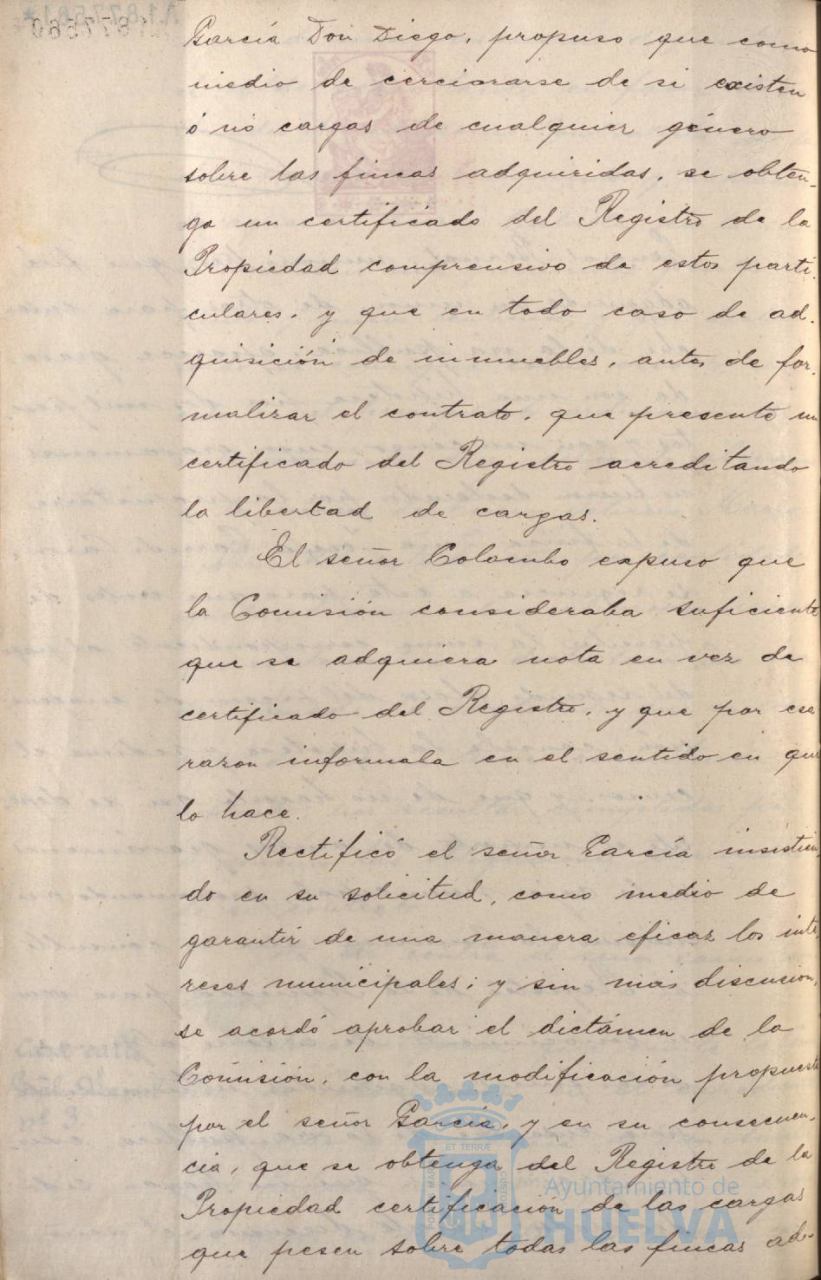 García Don Diego, propuso que como
medio de cerciorarse de si existen
ó nó cargas de cualquier género
sobre las fincas adquiridas, se obten-
ga un certificado del Registro de la
Propiedad comprensivo de estos parti-
culares, y que en todo caso de ad-
quisición de inmuebles, antes de for-
malizar el contrato, que presente un
certificado del Registro acreditando
la libertad de cargas.
El señor Colombo expuso que
la Comisión consideraba suficiente
que se adquiera nota en vez de
certificado del Registro, y que por esa
razon informaba en el sentido en que
lo hace.
Rectificó el señor García insistien-
do en su solicitud, como medio de
garantir de una manera eficaz los inte-
reses municipales; y sin más discusion,
se acordó aprobar el dictámen de la
Comisión, con la modificación propuesta
por el señor García, y en su consecuen-
cia, que se obtenga del Registro de la
Propiedad certificacion de las cargas
que pesen sobre todas las fincas ad-
Ayuntamiento de
HUELVA